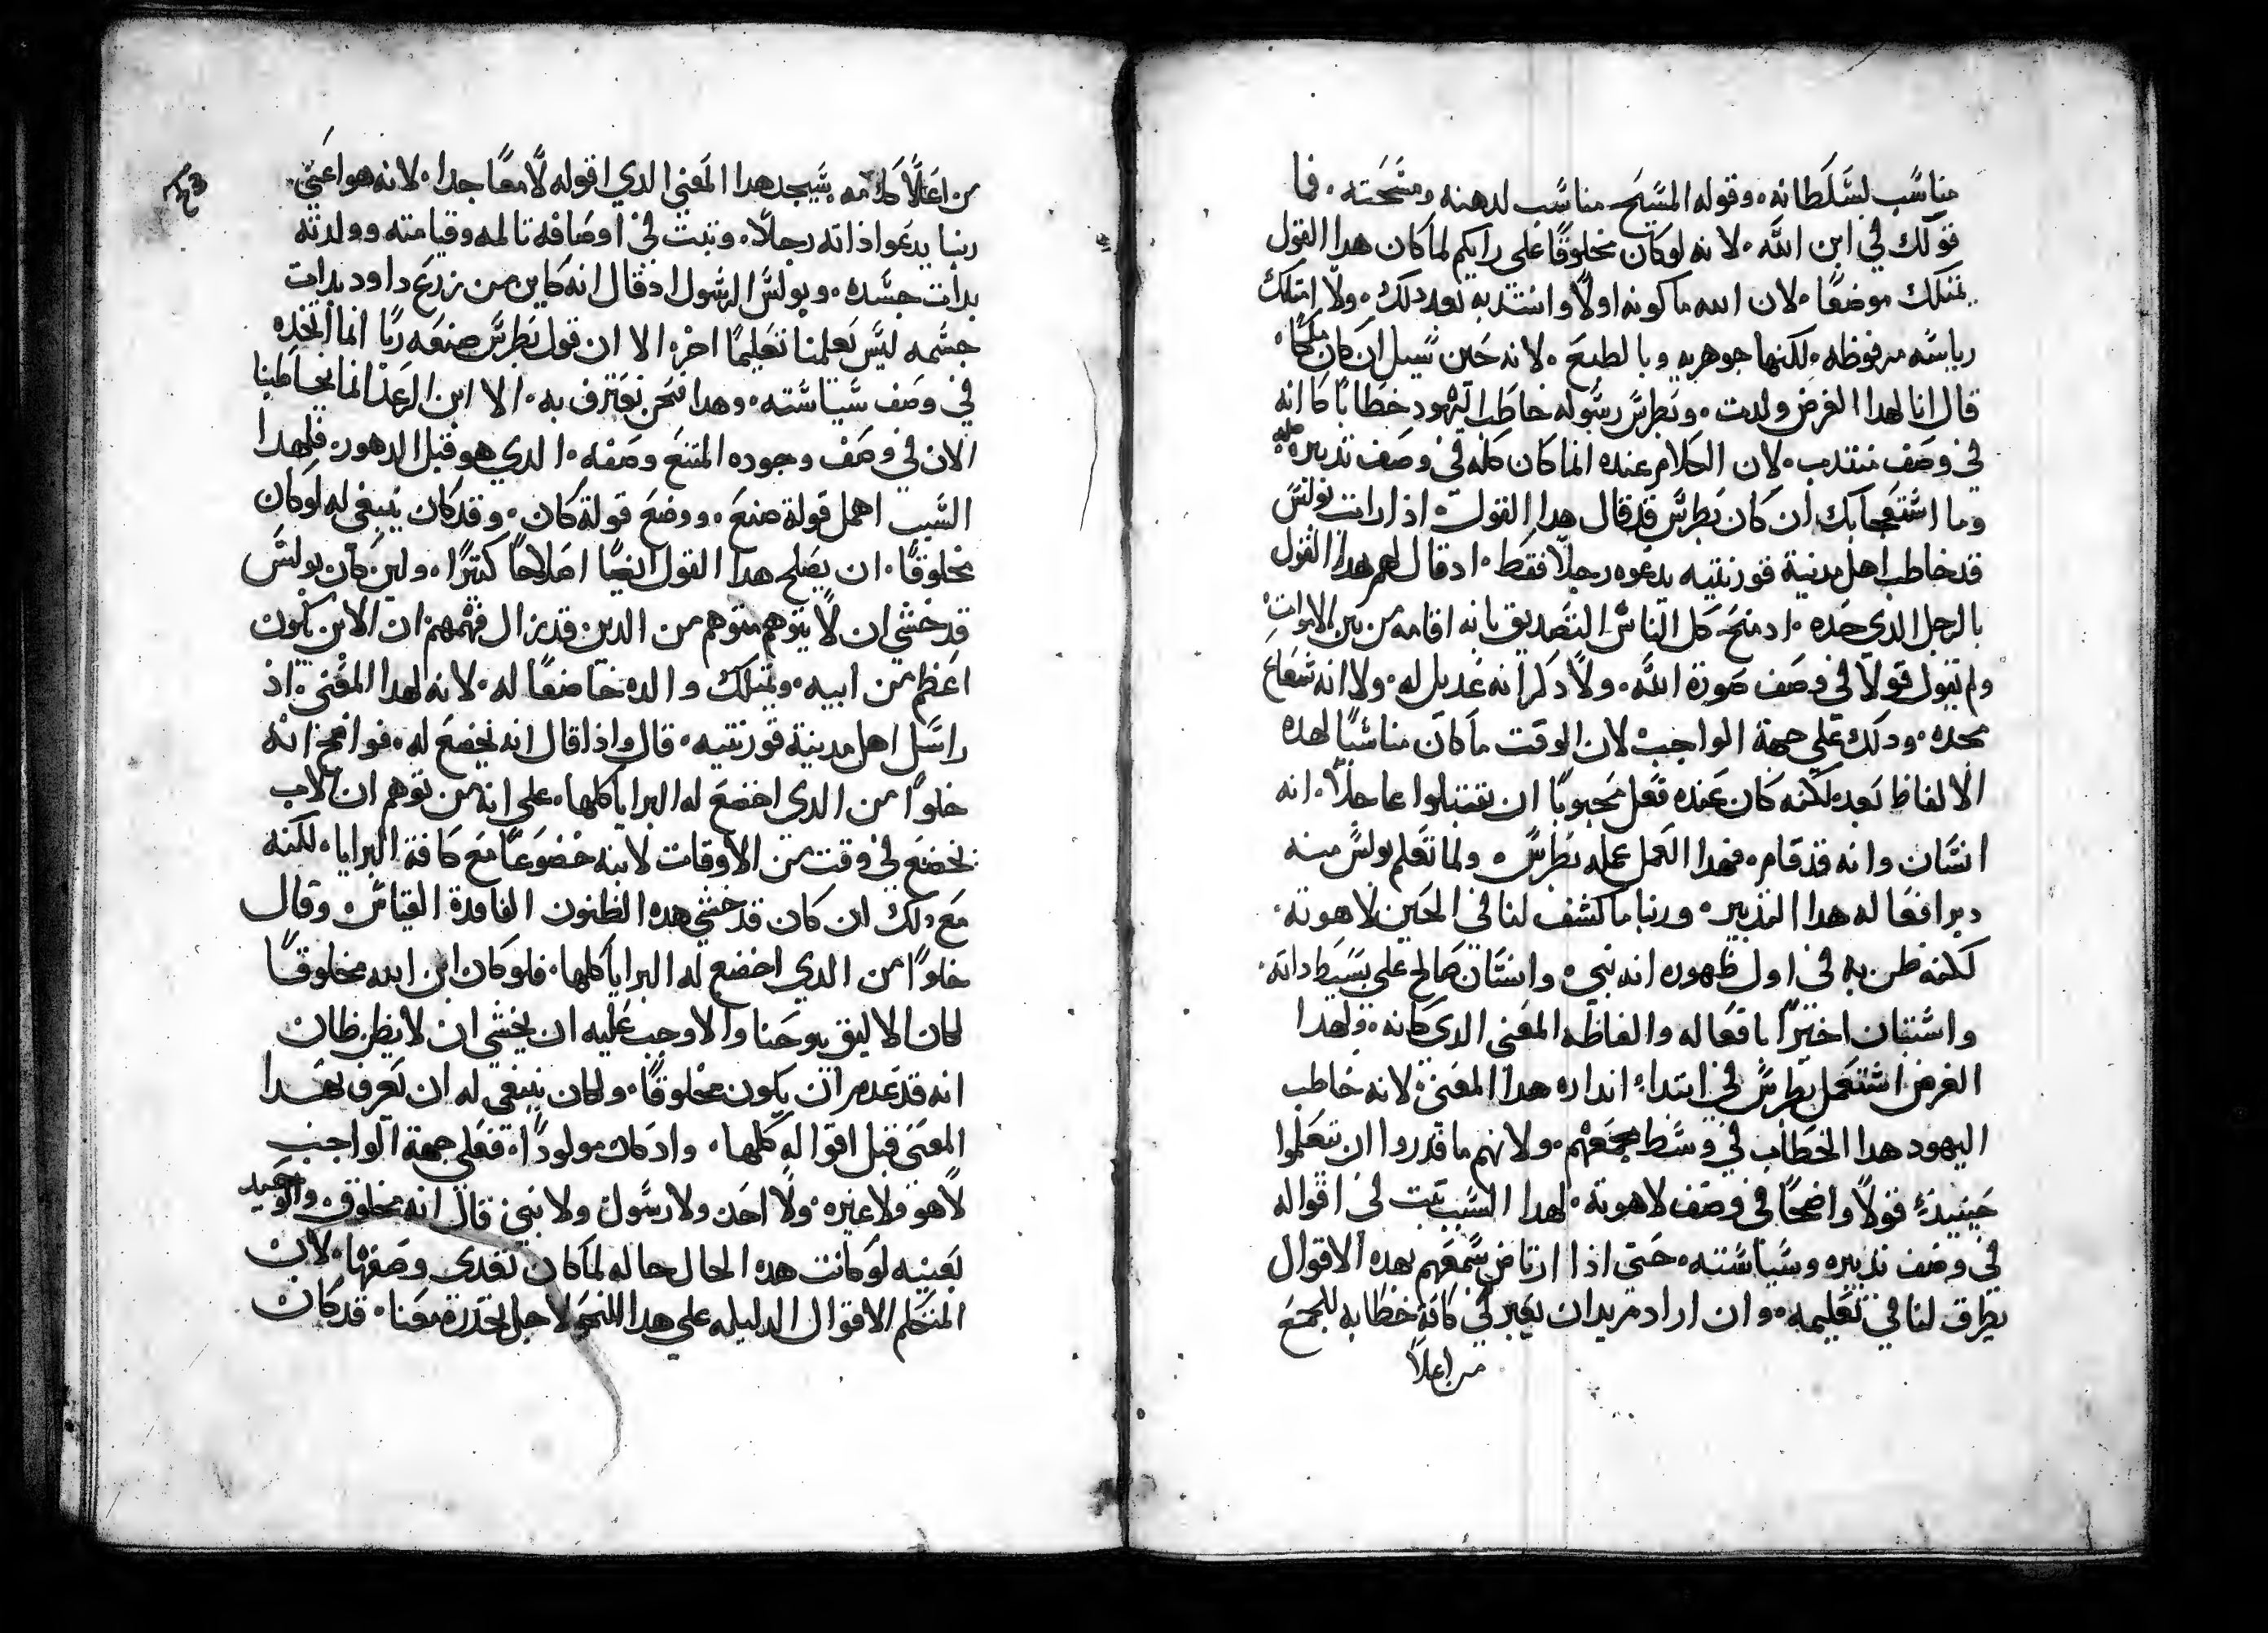 مناسب لسلطانه. وقوله المسيح مناسب لدهنه ومسحته. فما
قولك في ابن الله. لانه لو كان مخلوقًا على رايكم لما كان هدا القول
يمتلك موضعًا. لان الله ما كونه اولًا وانتدبه بعد دلك. ولا امتلك
رياسه مرفوظه. لكنها جوهريه وبالطبع. لانه حين سيل ان كان ملكًا.
قال انا لهدا الغرض ولدت. وبطرس رسوله خاطب اليهود خطابًا كانه
في وصف منتدب. لان الكلام عنده انما كان كله في وصف تدبيره
وما استعجابك ان كان بطرس قد قال هدا القول. اذا رايت بولس
قد خاطب اهل مدينة قورنتيه يدعوه رجلًا فقط. اد قال لهم هدا القول
بالرجل الدي حده. اد منح كل الناس التصديق بانه اقامه من بين الاموات
ولم يقول قولًا في وصف صورة الله. ولا دكر انه عديل له. ولا انه شعاع
مجده. ودلك على جهة الواجب لان الوقت ما كان مناسبًا لهده
الالفاظ بعد. لكنه كان عنده فعل محبوبًا ان يقتبلوا عاجلًا. انه
انسان وانه قد قام. فهدا العمل عمله بطرس. ولما تعلم بولس منه
دبر افعاله هدا التدبير. وربنا ما كشف لنا في الحين لاهوته.
لكنه ظن به في اول ظهوره انه نبي. وانسان صالح على بسيط داته.
واستبان اخيرًا بافعاله والفاظه المعنى الدي كانه. ولهدا
الغرض استعمل بطرس في ابتداء انداره هدا المعنى. لانه خاطب
اليهود هدا الخطاب في وسط مجمعهم. ولانهم ما قدروا ان يتعلموا
حينيذٍ قولًا واضحًا في وصف لاهوته. لهدا السبب ثبت في اقواله
في وصف تدبيره وسياسته. حتى اذا ارتاض سمعهم بهده الاقوال
يطرق لنا في تعليمه. وان اراد مريد ان يعبر في كافة خطابه للجمع
من اعلاً
من اعلًا كلامه سيجد هدا المعنى الدي اقوله لامعًا جدا. لانه هو اعني
ربنا يدعوا ذاته رجلًا. ويثبت في اوصافه تالمه وقيامته وولدته
بدات جسده. وبولس الرسول اد قال انه كاين من زرع داود بدات
جسمه ليس يعلمنا تعليمًا اخر. الا ان قول بطرس صنعه ربًا انما اتخده
في وصف سياسته. وهدا نحن نعترف به. الا ابن الرعد انما يخاطبنا
الان في وصف وجوده الممتنع وصفه. الدي هو قبل الدهور. فلهدا
السبب اهمل قولة صنع. ووضع قولة كان. وقد كان ينبغي له لو كان
مخلوقًا. ان يصلح هدا القول ايضًا اصلاحًا كثيرًا. ولين كان بولس
قد خشي ان لا يتوهم متوهم من الدين قد يزال فهمهم ان الابن يكون
اعظم من ابيه. ويمتلك والده خاضعًا له. لانه لهدا المعنى. اذ
راسل اهل مدينة قورنتيه. قال واذا قال انه يخضع له. فواضح انه
خلوًا من الدي اخضع له البرايا كلها. على انه من توهم ان الاب
يخضع في وقت من الاوقات لابنه خضوعًا مع كافة البرايا. لكنه
مع دلك ان كان قد خشي هده الظنون الفاقدة القياس. وقال
خلوًا من الدي اخضع له البرايا كلها. فلو كان ابن الله مخلوقًا
لكان الاليق بيوحنا والاوجب عليه ان يخشي ان لا يظن ظان
انه قد عدم ان يكون مخلوقًا. ولكان ينبغي له ان يعرف بهدا
المعنى قبل اقواله كلها. واد كان مولودًا. فعلى جهة الواجب
لا هو ولا غيره. ولا احد ولا رسول ولا نبي قال انه مخلوق. والوحيد
بعينه لو كانت هده الحال حاله لما كان تعدى وصفها. لان
المتكلم الاقوال الدليله على هدا النحو لاجل تحدره معنا. قد كان